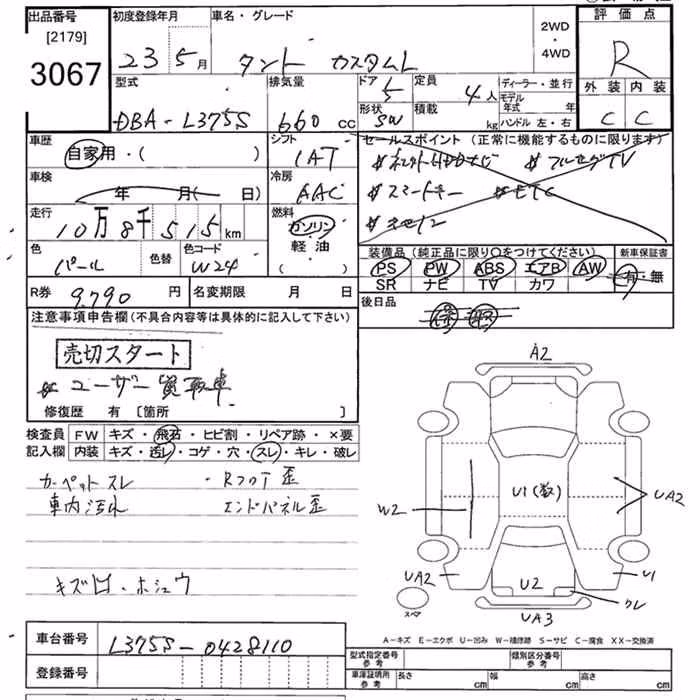 出品番号
[2179]
3067
初度登録年月
23 5月
車名・グレード
タント カスタムL
2WD
・
4WD
評価点
R
外装 内装
C C
型式
DBA-L375S
排気量
660cc
ドア
5
形状
SW
定員
4人
積載
kg
ディーラー・並行
モデル年式 年
ハンドル 左・右
車歴
自家用・( )
シフト
IAT
セールスポイント(正常に機能するものに限ります)
フルセグTV
スマートキー
ETC
車検
年 月( 日)
冷房
AAC
走行
10万8千515km
燃料
ガソリン
軽油
( )
色
パール
色替
色コード
W24
装備品(純正品に限り○をつけてください)
PS PW ABS エアB AW
SR ナビ TV カワ
新車保証書
有・無
R券
9,790円
名変期限 月 日
後日品
注意事項申告欄(不具合内容等は具体的に記入して下さい)
売切スタート
ユーザー買取車
修復歴 有 [箇所 ]
検査員
記入欄
FW キズ・飛石・ヒビ割・リペア跡・×要
内装 キズ・汚レ・コゲ・穴・スレ・キレ・破レ
カーペットスレ
車内汚れ
・RフロT歪
エンドパネル歪
キズ凹・ホシュウ
A2
U1(数)
W2
UA2
UA2
U2
U1
クレ
スペア
UA3
A-キズ E-エクボ U-凹み W-補修跡 S-サビ C-腐食 XX-交換済
車台番号
L375S-0428110
登録番号
型式指定番号
参考
類別区分番号
参考
車庫証明用
参考
長さ cm
幅 cm
高さ cm